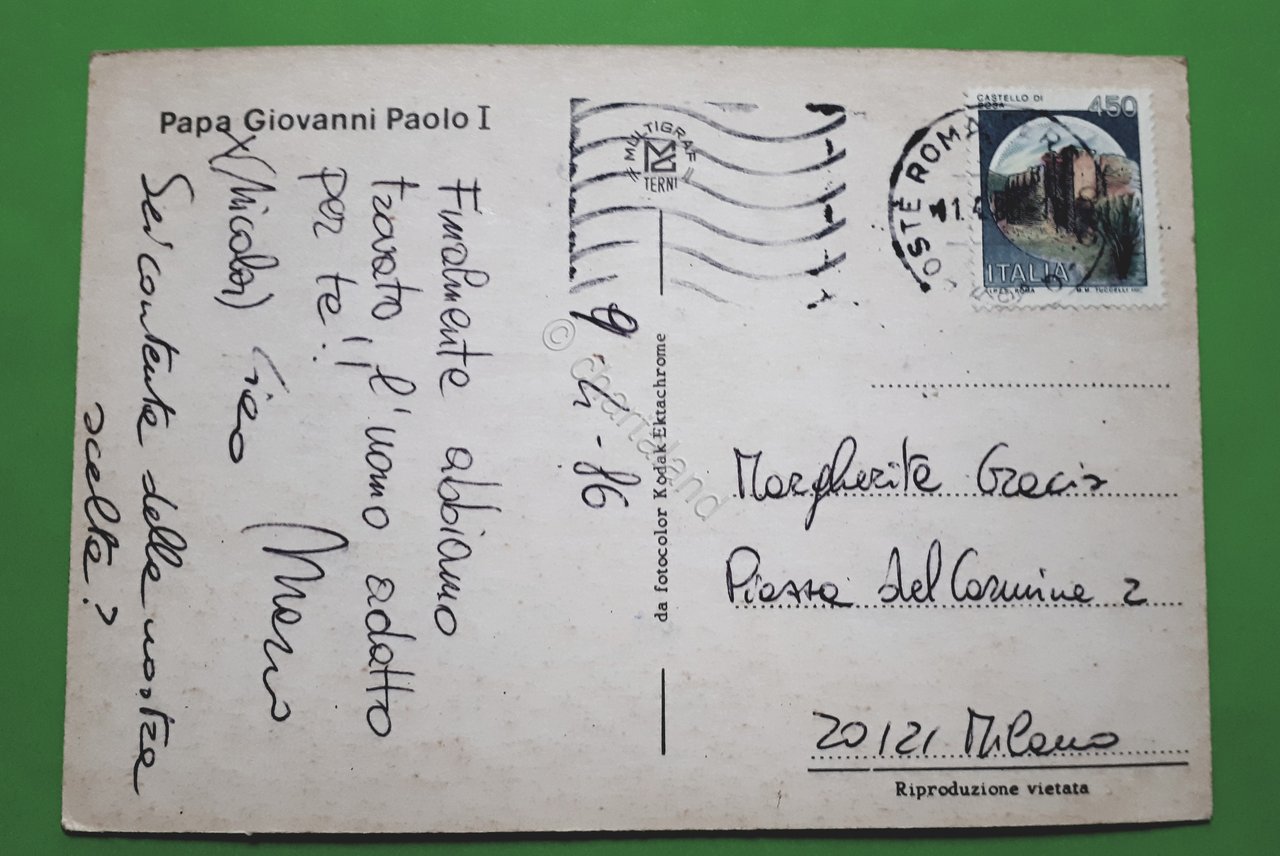 Papa Giovanni Paolo I
Finalmente abbiamo
trovato l'uomo adatto
per te!!
(Nicola) Ciao
Sei contenta della nostra
scelta?
9-4-86
MULTIGRAF
TERNI
da fotocolor Kodak Ektachrome
© chartaland
POSTE ROMA
11.4
CASTELLO DI
450
ITALIA
I.P.Z.S. ROMA
Margherita Gracis
Piazza del Carmine 2
20121 Milano
Riproduzione vietata